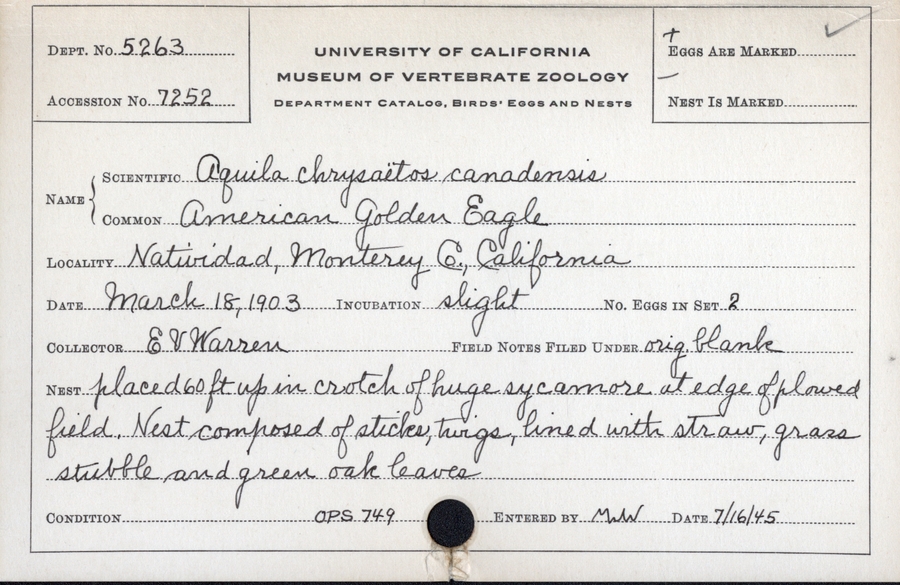 DEPT. NO. 5263
ACCESSION NO. 7252
UNIVERSITY OF CALIFORNIA
MUSEUM OF VERTEBRATE ZOOLOGY
DEPARTMENT CATALOG, BIRDS' EGGS AND NESTS
+ EGGS ARE MARKED
— NEST IS MARKED
NAME { SCIENTIFIC Aquila chrysaëtos canadensis
COMMON American Golden Eagle
LOCALITY Natividad, Monterey Co., California
DATE March 18, 1903 INCUBATION slight NO. EGGS IN SET 2
COLLECTOR E V Warren FIELD NOTES FILED UNDER orig. blank
NEST placed 60 ft up in crotch of huge sycamore at edge of plowed
field. Nest composed of sticks, twigs, lined with straw, grass
stubble and green oak leaves
CONDITION OPS 749 ENTERED BY MWW DATE 7/16/45